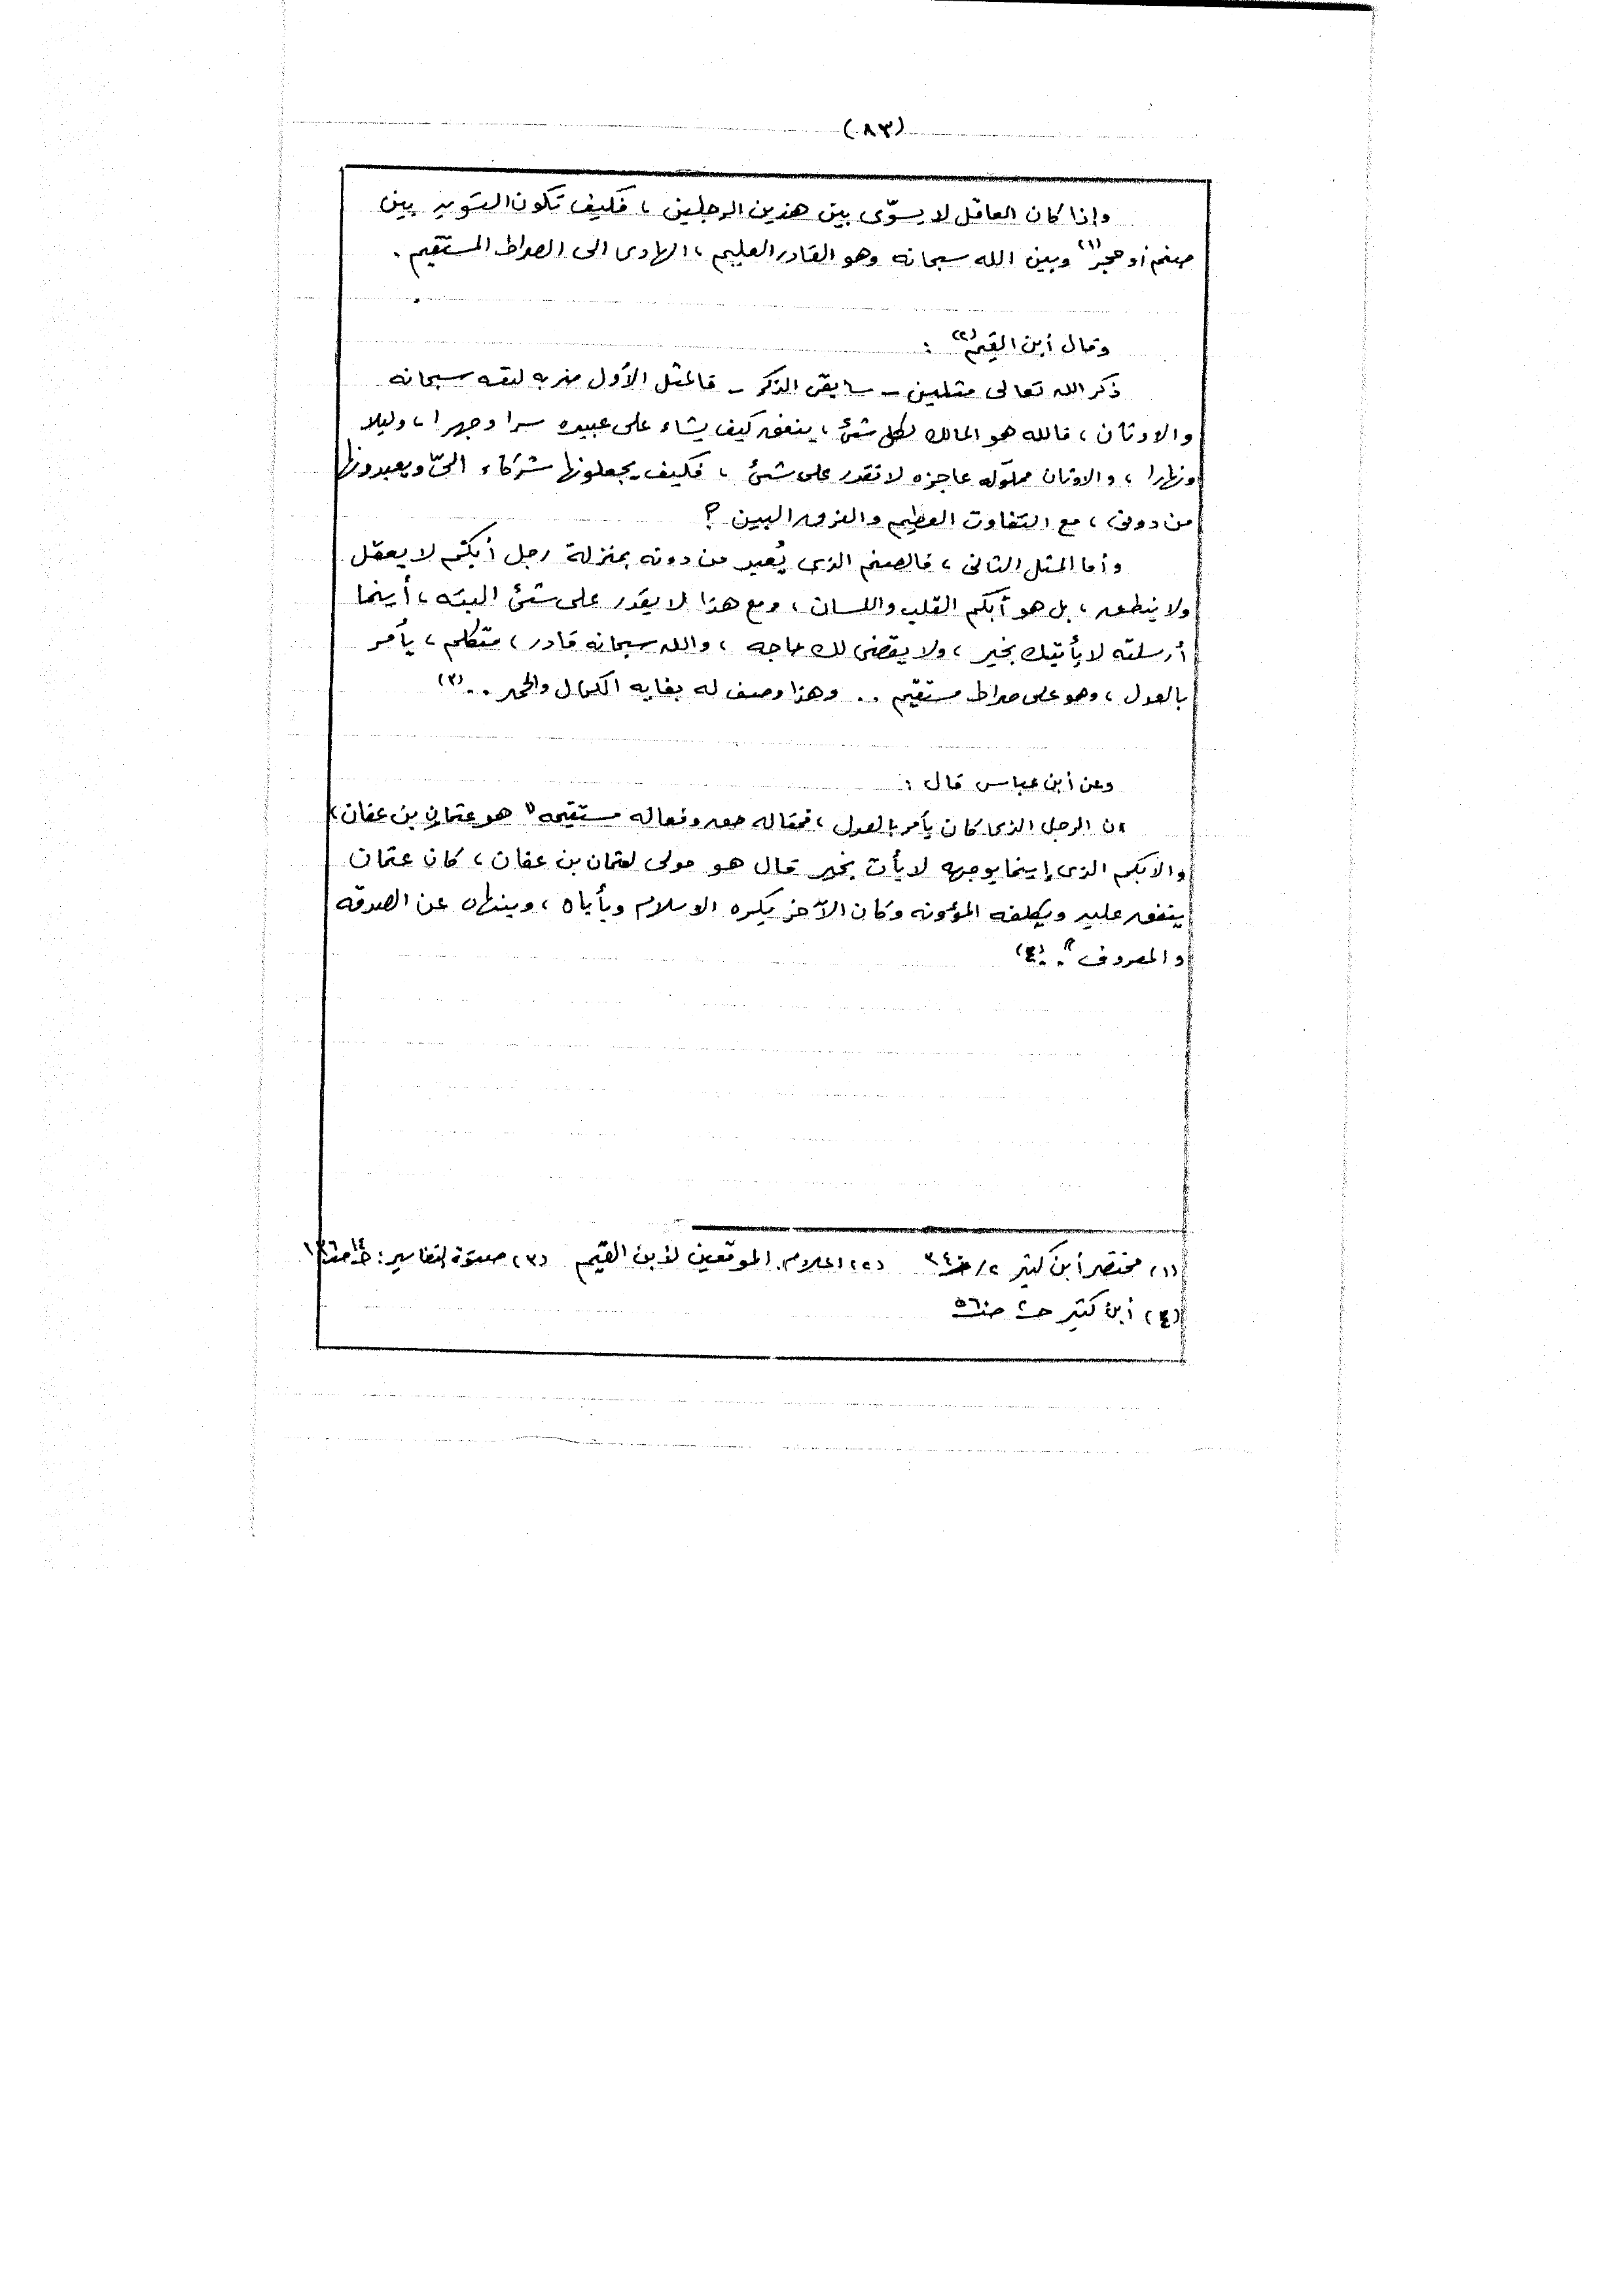 (٨٣)
وإذا كان العاقل لا يسوّى بين هذين الرجلين ، فكيف تكون التسويه بين
صنم أو حجر (١) وبين الله سبحانه وهو القادر العليم ، الهادى الى الصراط المستقيم .
وقال أبن القيم (٢) :
ذكر الله تعالى مثلين - سابقى الذكر - فالمثل الأول ضربه لنفسه سبحانه
والاوثان ، فالله هو المالك لكل شئ ، ينفق كيف يشاء على عبيده سرا وجهرا ، وليلا
ونهارا ، والاوثان مملوكه عاجزه لا تقدر على شئ ، فكيف يجعلونها شركاء الىّ ويعبدونها
من دونى ، مع التفاوت العظيم والفرق البين ؟
وأما المثل الثانى ، فالصنم الذى يُعبد من دونه بمنزلة رجل أبكم لا يعقل
ولا ينطق ، بل هو أبكم القلب واللسان ، ومع هذا لا يقدر على شئ البته ، أينما
أرسلته لا يأتيك بخير ، ولا يقضى لك حاجه ، والله سبحانه قادر ، متكلم ، يأمر
بالعدل ، وهو على صراط مستقيم .. وهذا وصف له بغايه الكمال والحمد .. (٣)
وعن أبن عباس قال :
" ان الرجل الذى كان يأمر بالعدل ، فمقاله حق وفعاله مستقيمه " هو عثمان بن عفان ،
والأبكم الذى إينما يوجهه لا يأت بخير قال هو مولى لعثمان بن عفان ، كان عثمان
ينفق عليه ويكلفه المؤونه وكان الآخر يكره الاسلام ويأباه ، وينهاه عن الصدقه
والمعروف " .. (٤)
(١) مختصر أبن كثير ٢/ ٣٤ (٢) اعلام الموقعين لأبن القيم (٣) صفوة التفاسير :
(٤) أبن كثير